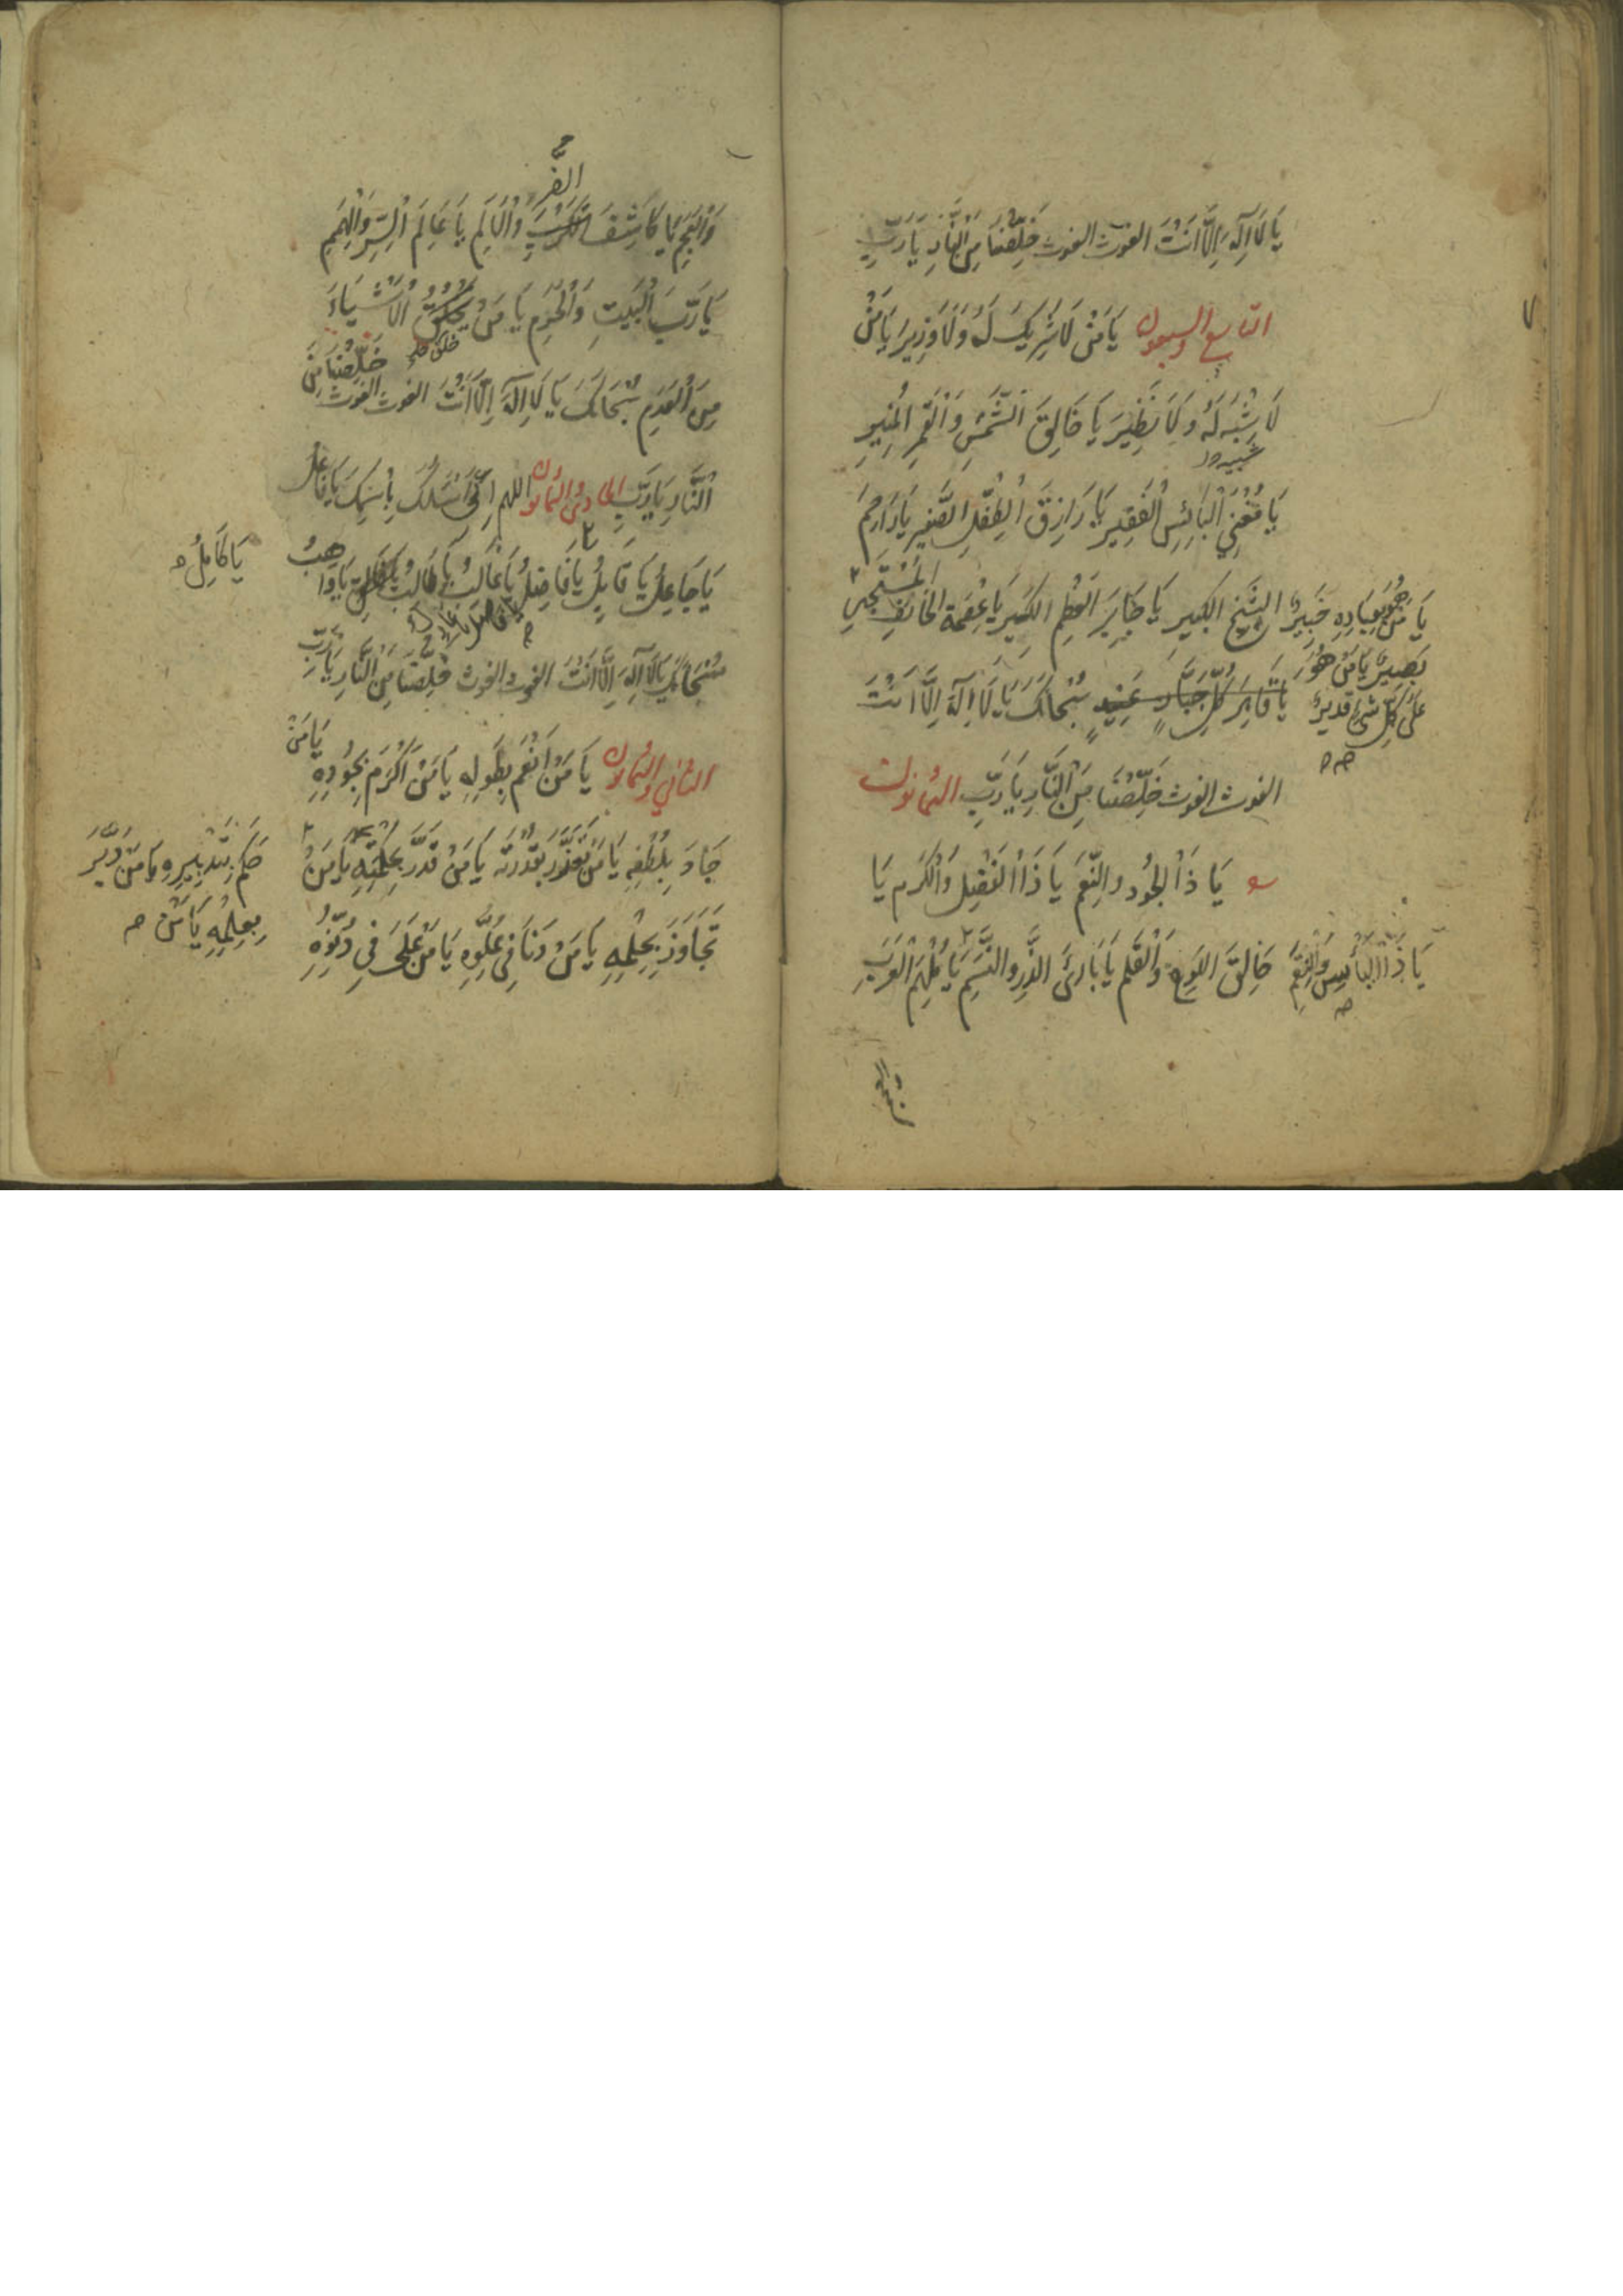 يَا لَا اِلَهَ اِلَّا اَنْتَ الغوث الغوث خَلِّصْنَا مِنَ النَّارِ يَا رَبِّ
التاسع والسبعون يَا مَنْ لَا شَرِيكَ لَهُ وَلَا وَزِيرَ يَا مَنْ
لَا شِبْهَ لَهُ وَلَا نَظِيرَ يَا خَالِقَ الشَّمْسِ وَالْقَمَرِ الْمُنِيرِ
شبيه
يَا مُغْنِيَ الْبَائِسِ الْفَقِيرِ يَا رَازِقَ الطِّفْلِ الصَّغِيرِ يَا رَاحِمَ
الشَّيْخِ الكَبِيرِ يَا جَابِرَ الْعَظْمِ الكَسِيرِ يَا عِصْمَةَ الخَائِفِ الْمُسْتَجِيرِ
يَا مَنْ هُوَ بِعِبَادِهِ خَبِيرٌ
بَصِيرٌ يَا مَنْ هُوَ
عَلَى كُلِّ شَيْءٍ قَدِيرٌ
يَا قَاهِرَ كُلِّ جَبَّارٍ عَنِيدٍ سُبْحَانَكَ يَا لَا اِلَهَ اِلَّا اَنْتَ
الغوث الغوث خَلِّصْنَا مِنَ النَّارِ يَا رَبِّ الثمانون
يَا ذَا الْجُودِ والنِّعَمِ يَا ذَا الْفَضْلِ وَالْكَرَمِ يَا
خَالِقَ اللَّوْحِ وَالْقَلَمِ يَا بَارِئَ الذَّرِّ والنَّسَمِ يَا مُلْهِمَ الْعَرَبِ
يَا ذَا الْبَأْسِ وَالنِّقَمِ
وَالْعَجَمِ يَا كَاشِفَ الضُّرِّ وَالْاَلَمِ يَا عَالِمَ السِّرِّ وَالْهِمَمِ
الضُّرِّ
يَا رَبَّ الْبَيْتِ وَالْحَرَمِ يَا مَنْ يَخْلُقُ الْاَشْيَاءَ
خلق
مِنَ الْعَدَمِ سُبْحَانَكَ يَا لَا اِلَهَ اِلَّا اَنْتَ الغوث الغوث خَلِّصْنَا مِنَ
النَّارِ يَا رَبِّ الحادي والثمانون اللهم اِنِّي اَسْئَلُكَ بِاسْمِكَ يَا فَاعِلُ
يَا جَاعِلُ يَا قَابِلُ يَا فَاضِلُ يَا غَالِبُ يَا طَالِبُ يَا وَاهِبُ
يَا كَامِلُ
سُبْحَانَكَ يَا لَا اِلَهَ اِلَّا اَنْتَ الغوث الغوث خَلِّصْنَا مِنَ النَّارِ يَا رَبِّ
الثاني والثمانون يَا مَنْ اَنْعَمَ بِطَوْلِهِ يَا مَنْ اَكْرَمَ بِجُودِهِ يَا مَنْ
جَادَ بِلُطْفِهِ يَا مَنْ تَعَزَّزَ بِقُدْرَتِهِ يَا مَنْ قَدَّرَ بِحِكْمَتِهِ يَا مَنْ
حَكَمَ بِتَدْبِيرِهِ يَا مَنْ دَبَّرَ
بِعِلْمِهِ يَا مَنْ
تَجَاوَزَ بِحِلْمِهِ يَا مَنْ دَنَا فِي عُلُوِّهِ يَا مَنْ عَلَى فِي دُنُوِّهِ